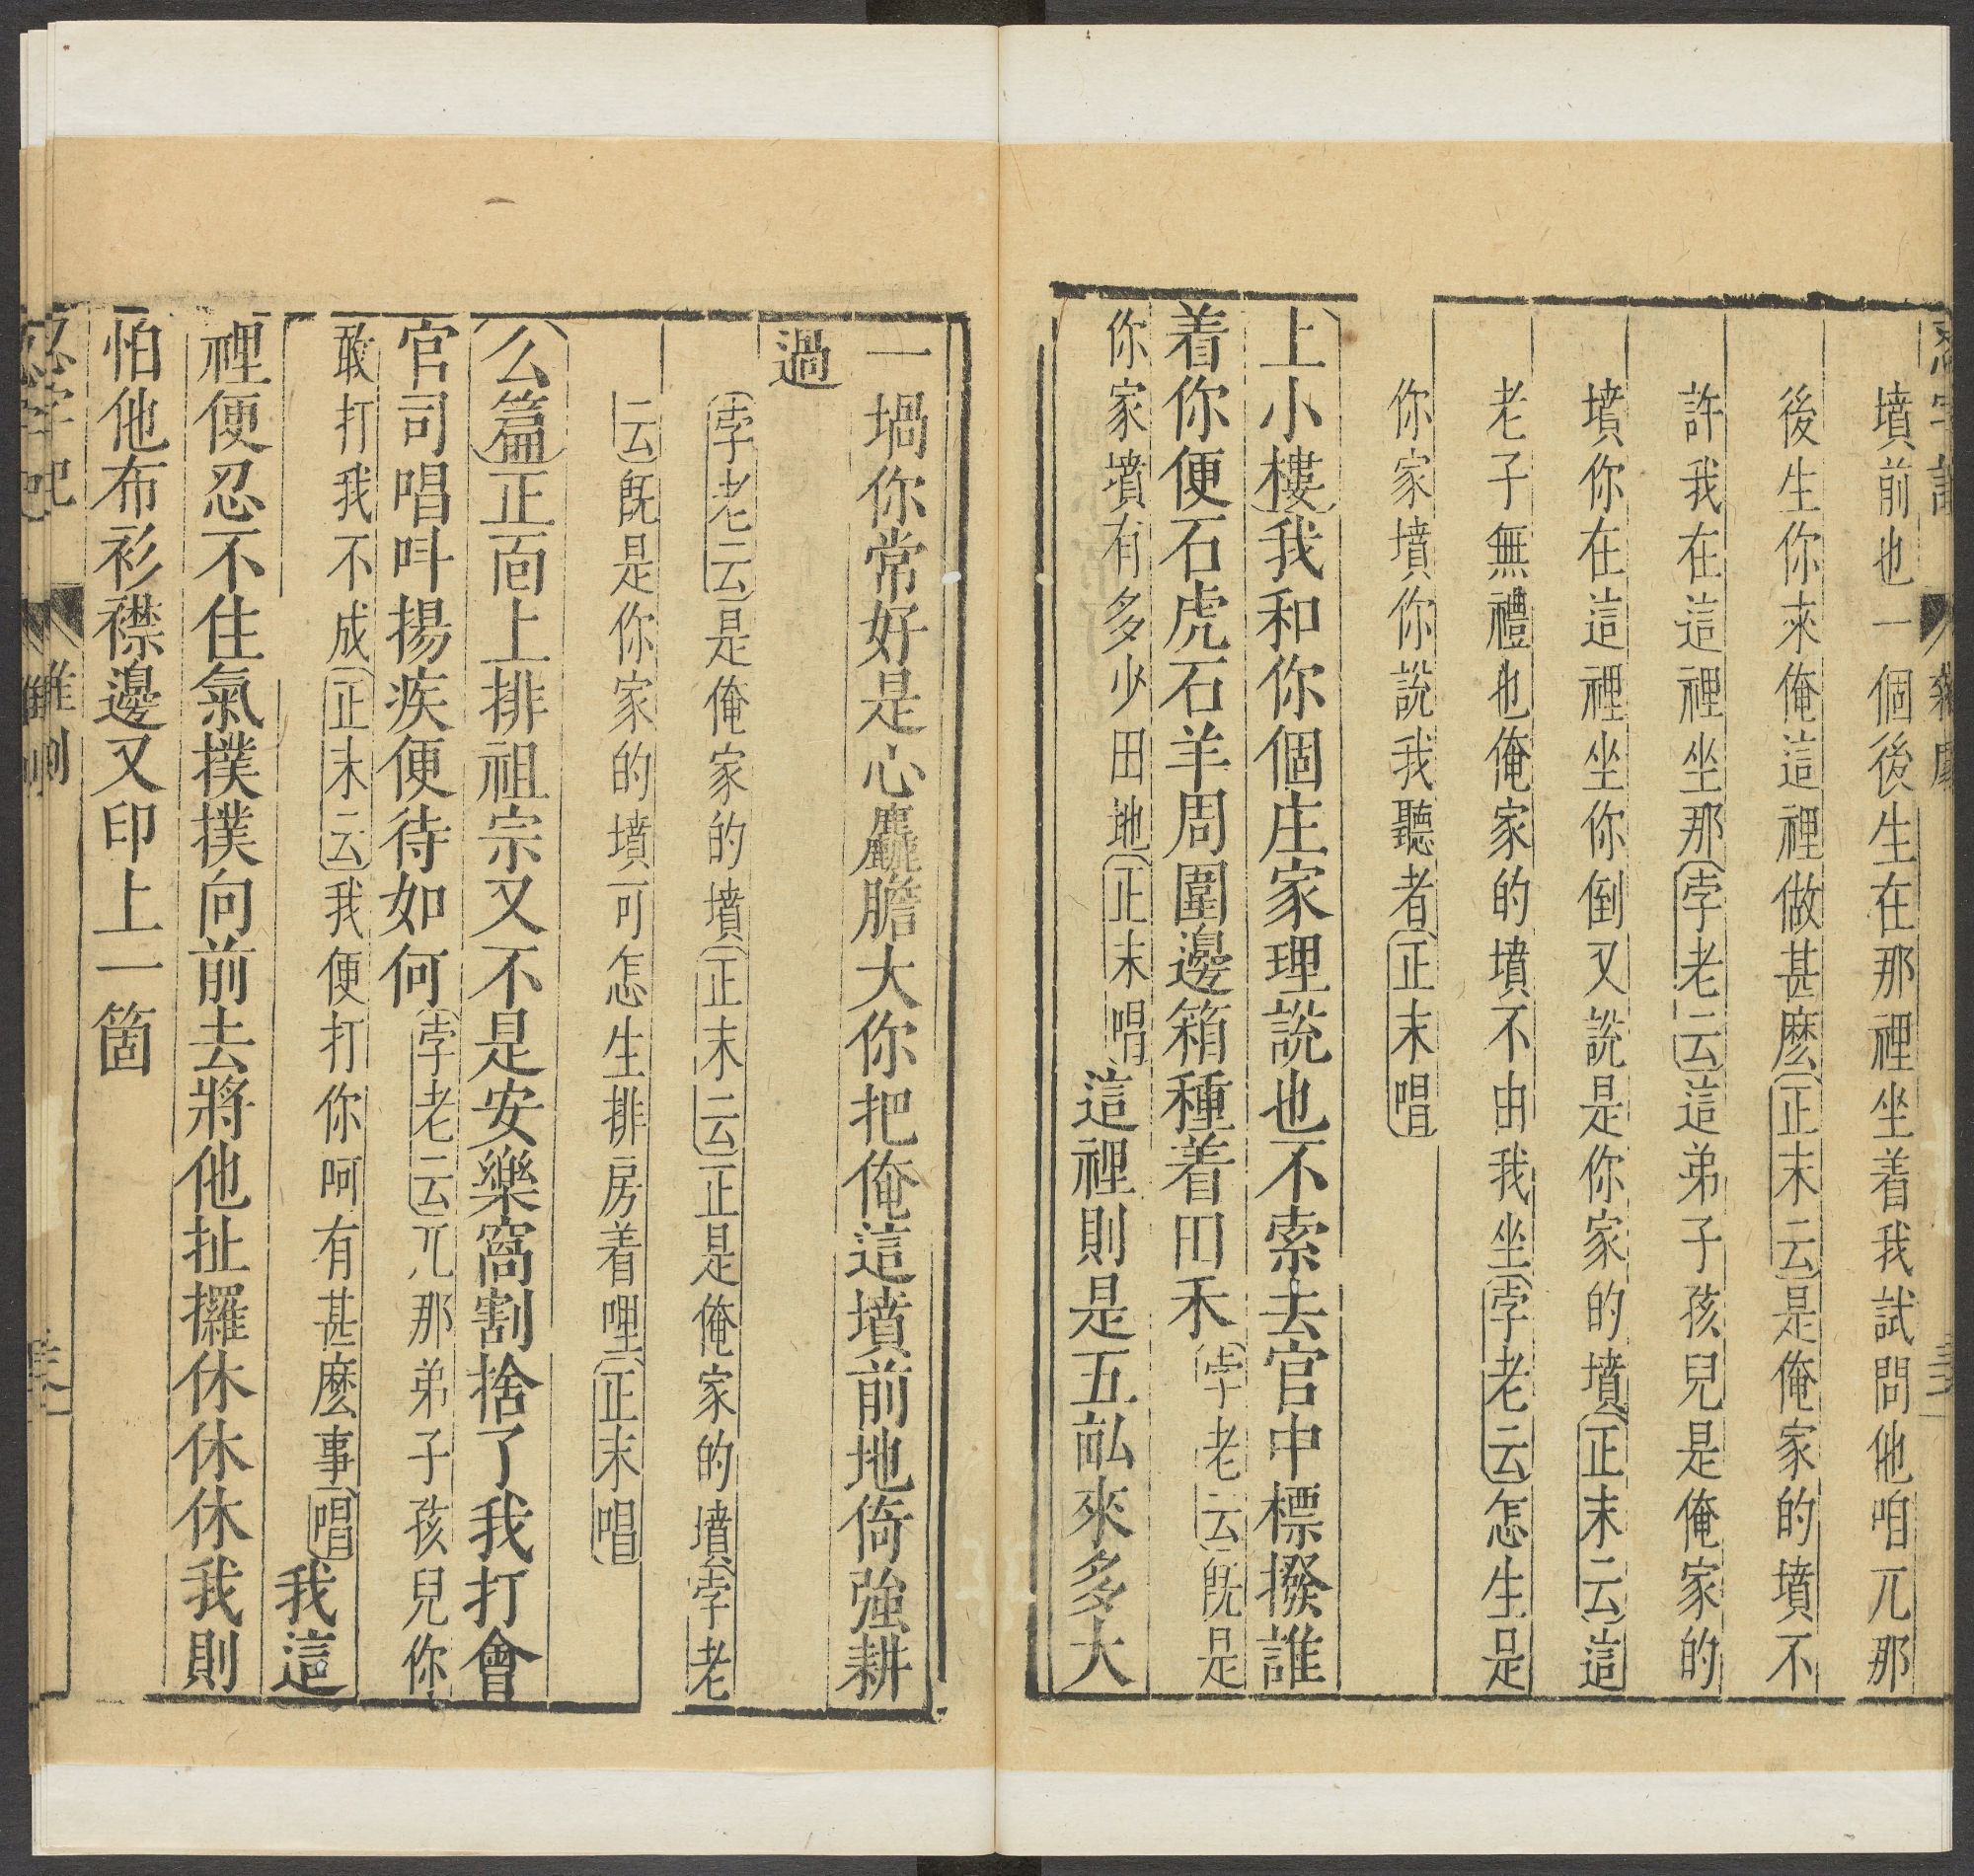 墳前也一個後生在那裡坐着我試問他咱兀那
後生你來俺這裡做甚麽正末云是俺家的墳不
許我在這裡坐那孛老云這弟子孩兒是俺家的
墳你在這裡坐你倒又說是你家的墳正末云這
老子無禮也俺家的墳不由我坐孛老云怎生是
你家墳你說我聽者正末唱
上小樓我和你個庄家理說也不索去官中標撥誰
着你便石虎石羊周圍邊箱種着田禾孛老云旣是
你家墳有多少田地正末唱這裡則是五畝來多大
一堝你常好是心麤膽大你把俺這墳前地倚強耕
過
孛老云是俺家的墳正末云正是俺家的墳孛老
云旣是你家的墳可怎生排房着哩正末唱
么篇正面上排祖宗又不是安樂窩割捨了我打會
官司唱呌揚疾便待如何孛老云兀那弟子孩兒你
敢打我不成正末云我便打你呵有甚麽事唱我這
裡便忍不住氣撲撲向前去將他扯攞休休休我則
怕他布衫襟邊又印上一箇
忍字記
雜劇